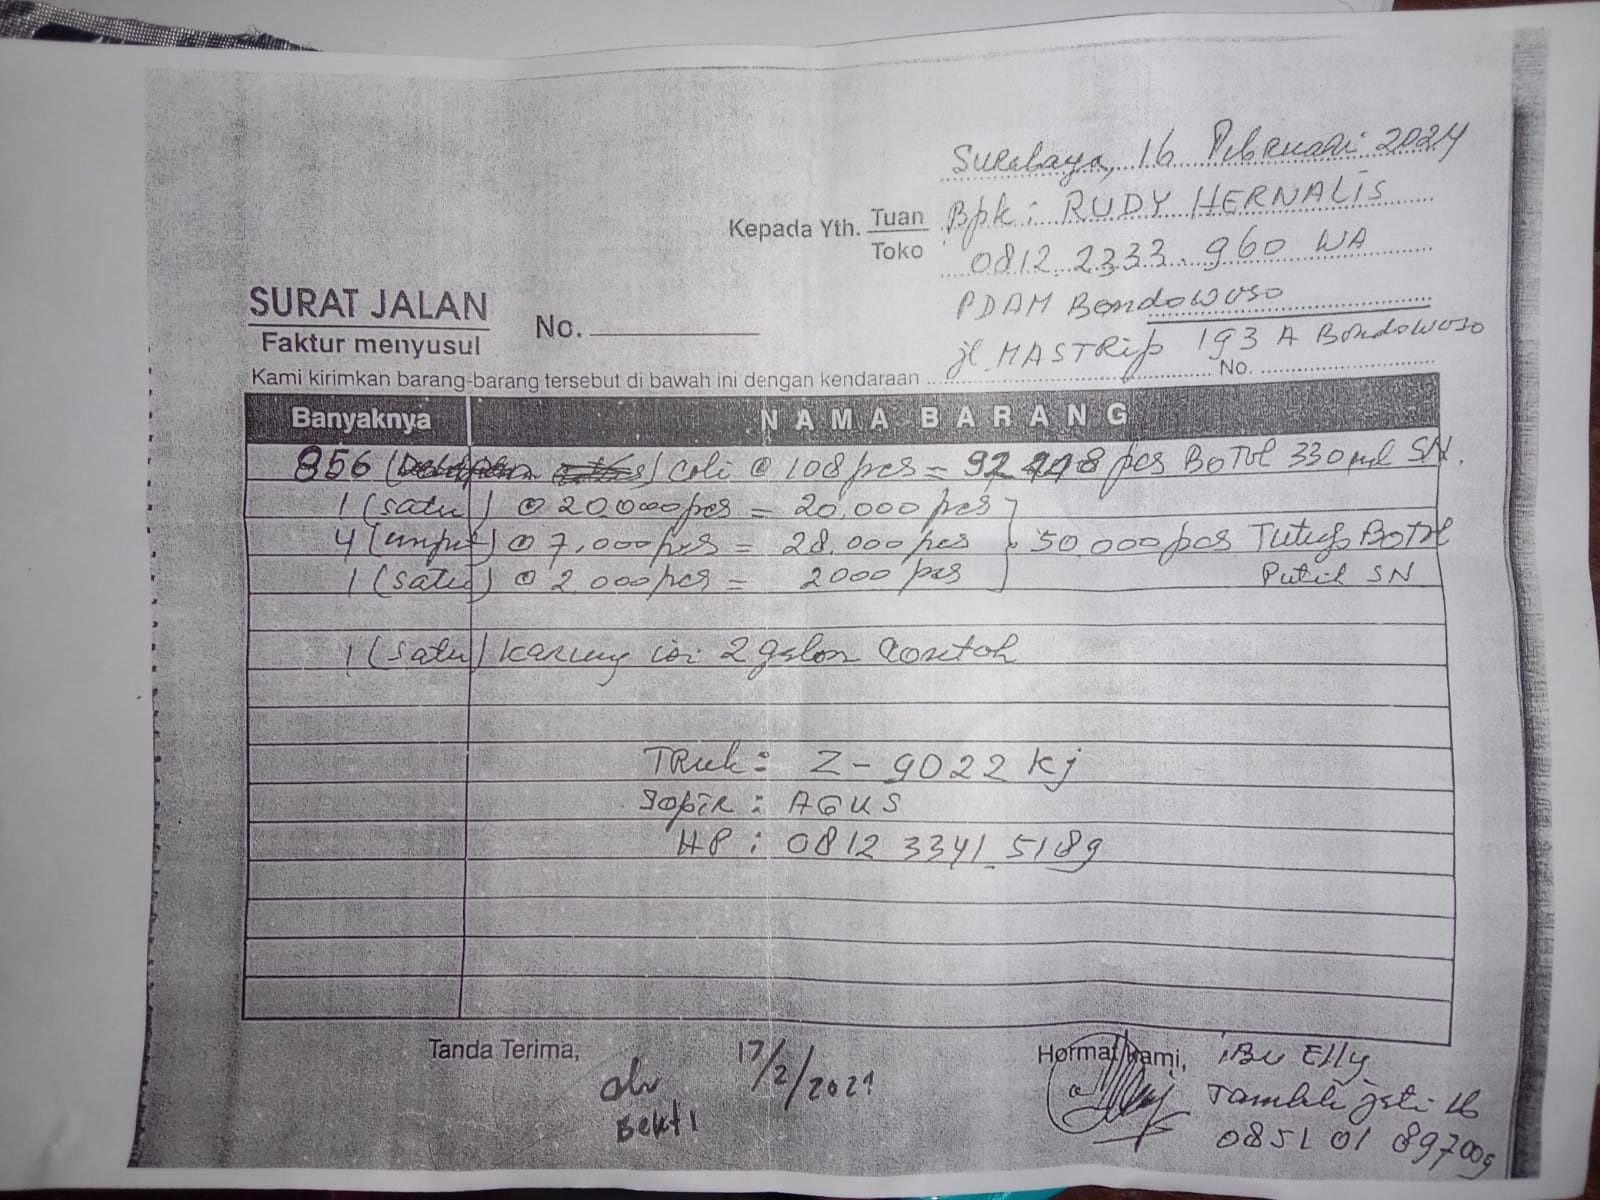 Surabaya, 16 Pebruari 2024
Kepada Yth. Tuan Bpk : RUDY HERNALIS
Toko 0812 2333.960 WA
PDAM Bondowoso
SURAT JALAN No.
Faktur menyusul
jl. MASTRip 193 A Bondowoso
Kami kirimkan barang-barang tersebut di bawah ini dengan kendaraan No.
Banyaknya NAMA BARANG
856 ( ) Coli @ 108 pcs = 92 448 pcs Botol 330 ml SN.
1 (satu) @ 20.000 pcs = 20.000 pcs
4 (empat) @ 7.000 pcs = 28.000 pcs } 50.000 pcs Tutup Botol
1 (satu) @ 2.000 pcs = 2000 pcs Putih SN
1 (satu) karung isi 2 galon Contoh
TRuk : Z - 9022 Kj
Sopir : AGUS
HP : 0812 3341 5189
Tanda Terima, 17/2/2021 Hormat kami, iBu Elly
Bekti
085101 897009